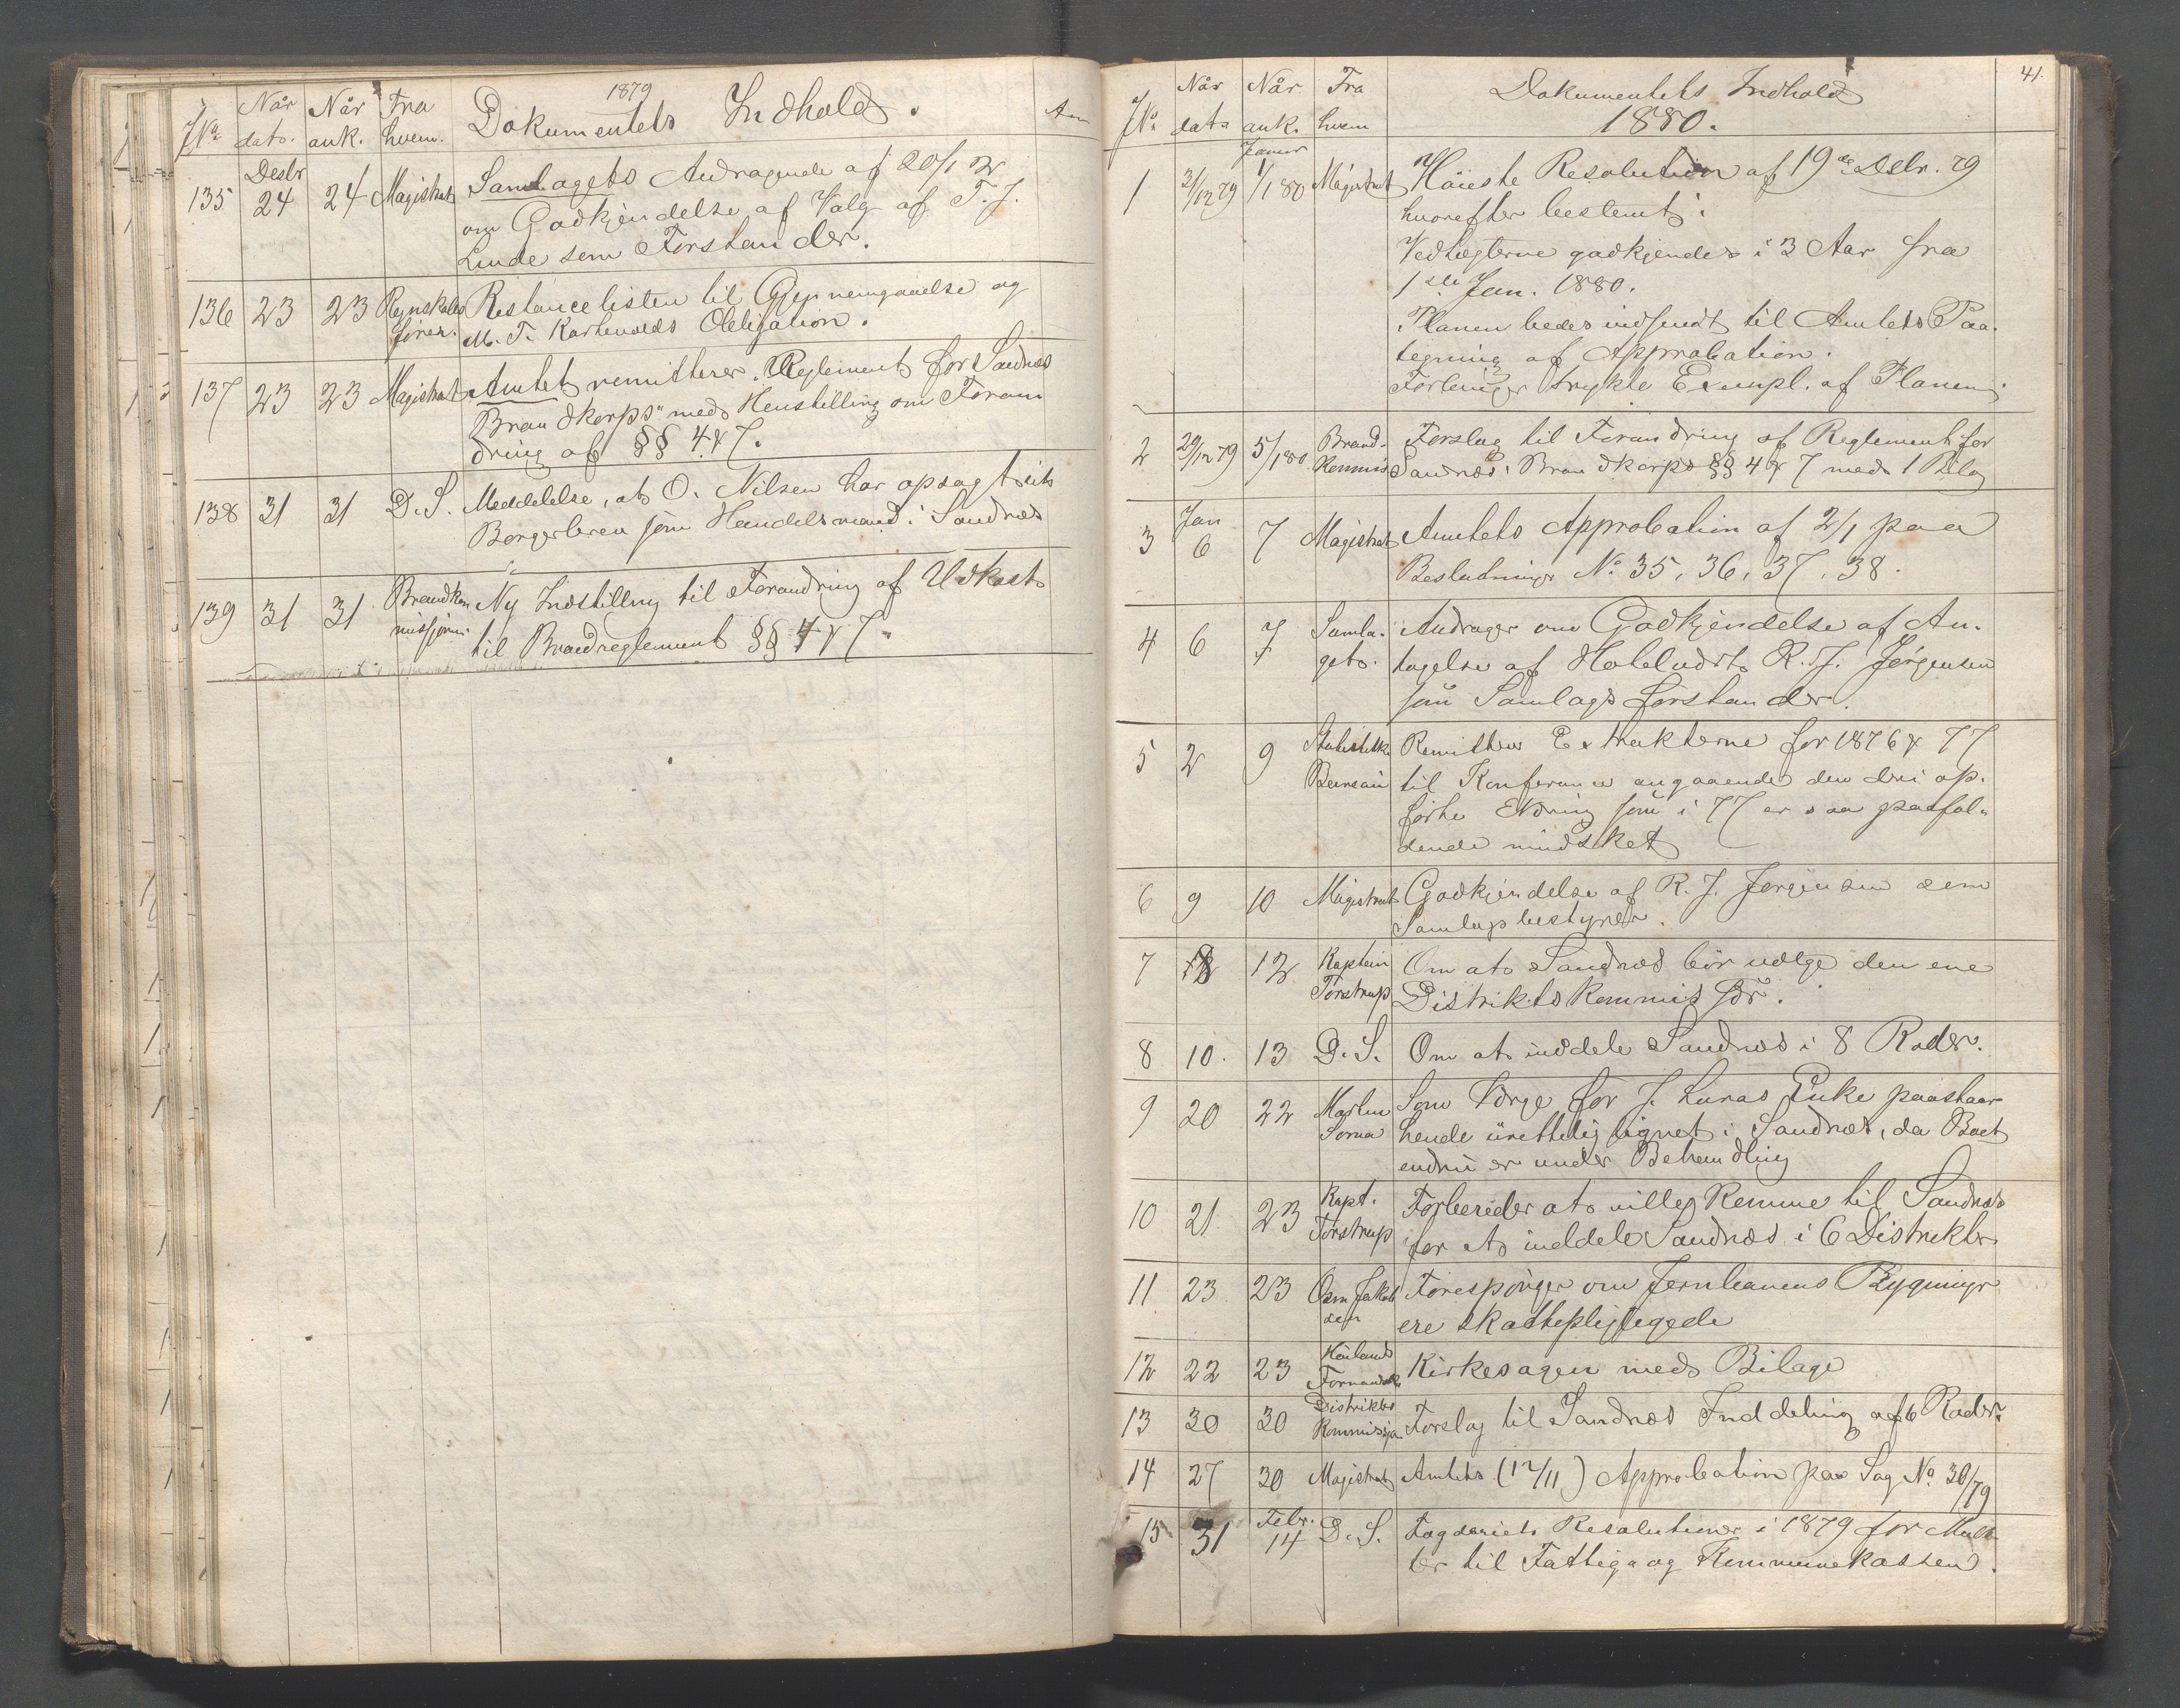 1879
No. Når dato. Når ank. Fra hvem. Dokumentets Indhold. Anm
Desbr
135 24 24 Magistrat Samlagets Andragende af 20/12
om Godkjendelse af Valg af T. J.
Linde som Forstander.
136 23 23 Regnskabsfører. Restancelisten til Gjennemgaaelse og
M. T. Karlsvolds Obligation.
137 23 23 Magistrat Amtet remitterer "Reglement for Sandnæs
Brandkorps" med Henstilling om Foran
dring af §§ 4 & 7.
138 31 31 D. S. Meddelelse, at O. Nilsen har opsagt sit
Borgerbrev som Handelsmand i Sandnæs
139 31 31 Brandkommissjonen Ny Indstilling til Forandring af Udkast
til Brandreglement §§ 4 & 7.
41.
No. Når dato Når ank. Fra hvem Dokumentets Indhold
1880.
Januar
1 31/12 79 1/1 80 Magistrat Høieste Resolution af 19de Desbr. 79
hvorefter bestemt:
Vedtægterne godkjendes i 3 Aar fra
1ste Jan. 1880.
Planen bedes indsendt til Amtets Paa-
tegning af Approbation.
Forlanger 3 trykte Exempl. af Planen
2 29/12 79 5/1 80 Brand-Kommis Forslag til Forandring af Reglement for
Sandnæs Brandkorps §§ 4 & 7 med 1 Bilag
Jan
3 6 7 Magistrat Amtets Approbation af 2/1 paa
Beslutninger No. 35, 36, 37, 38.
4 6 7 Samlagets. Andrager om Godkjendelse af An-
tagelse af Hotelvært R. J. Jørgensen
som Samlagsforstander.
5 2 9 Statistiske Bureau Remitterer Extrakterne for 1876 & 77
til Konferance angaaende den deri op-
førte Ældning som i 77 er saa paafal-
dende mindsket
6 9 10 Magistrat Godkjendelse af R. J. Jørgensen som
Samlagsbestyrer.
7 12 Kaptein Torstrup Om at Sandnæs bør vælge den ene
Distriktskommissær.
8 10. 13 D. S. Om at inddele Sandnæs i 8 Roder.
9 20 22 Som Værge for J. Luras Enke paastaar
hende urettelig lignet i Sandnæs, da Boet
endnu er under Behandling
10 21. 23 Kapt. Torstrup Forbereder at ville komme til Sandnæs
for at inddele Sandnæs i 6 Distrikter
11 23. 23 Osm Jakobsen Forespørger om Jernbanens Bygninger
ere skattepligtige
12 22 23 Høilands Formandsk. Kirkesagen med Bilage
13 30 30 Distrikts Kommissjon Forslag til Sandnæs Inddeling af 6 Roder.
14 27 30 Magistrat Amtets (12/11) Approbation paa Sag No. 30/79
Febr.
15 31 14 D. S. Fogderiets Resolutioner i 1879 for Mulk-
ter til Fattig- og Kommunekassen.